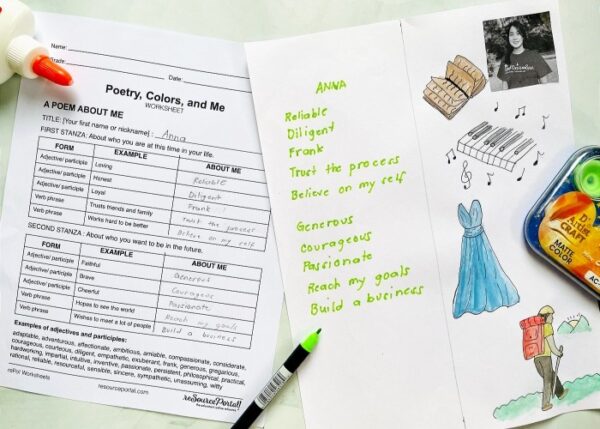 Name:
Grade:
Date:
Poetry, Colors, and Me
WORKSHEET
A POEM ABOUT ME
TITLE: [Your first name or nickname] : Anna
FIRST STANZA: About who you are at this time in your life.
FORM EXAMPLE ABOUT ME
Adjective/ participle Loving Reliable
Adjective/ participle Honest Diligent
Adjective/ participle Loyal Frank
Verb phrase Trusts friends and family Trust the process
Verb phrase Works hard to better Believe on my self
SECOND STANZA: About who you want to be in the future.
FORM EXAMPLE ABOUT ME
Adjective/ participle Faithful Generous
Adjective/ participle Brave Courageous
Adjective/ participle Cheerful Passionate
Verb phrase Hopes to see the world Reach my goals
Verb phrase Wishes to meet a lot of people Build a business
Examples of adjectives and participles:
adaptable, adventurous, affectionate, ambitious, amiable, compassionate, considerate,
courageous, courteous, diligent, empathetic, exuberant, frank, generous, gregarious,
hardworking, impartial, intuitive, inventive, passionate, persistent, philosophical, practical,
rational, reliable, resourceful, sensible, sincere, sympathetic, unassuming, witty
rePo! Worksheets
resourceportal.com
reSourcePortal!
ANNA
Reliable
Diligent
Frank
Trust the process
Believe on my self
Generous
Courageous
Passionate
Reach my goals
Build a business
D'
Artim
CRAFT
MATTE
COLOR
AC-